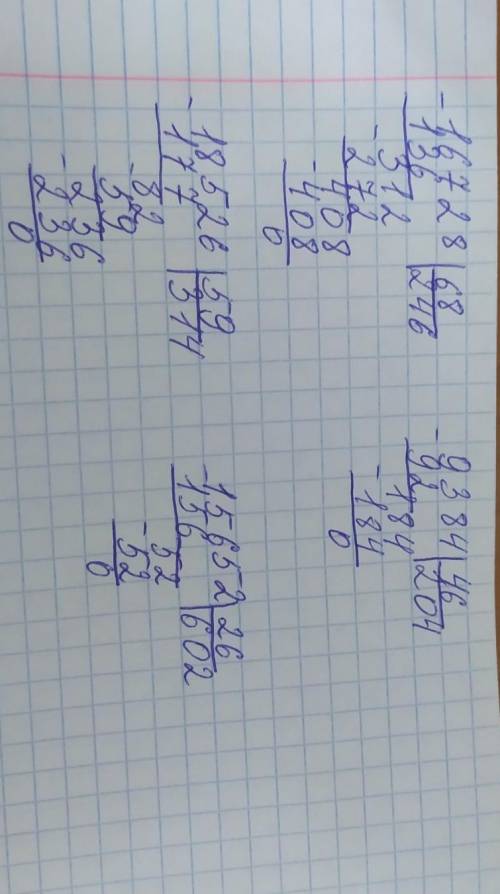 -16728 |68
136 246
312
-272
408
-408
0
-9384 |46
92 204
184
-184
0
-18526 |59
177 314
82
-59
236
-236
0
-15652 |26
156 602
52
-52
0